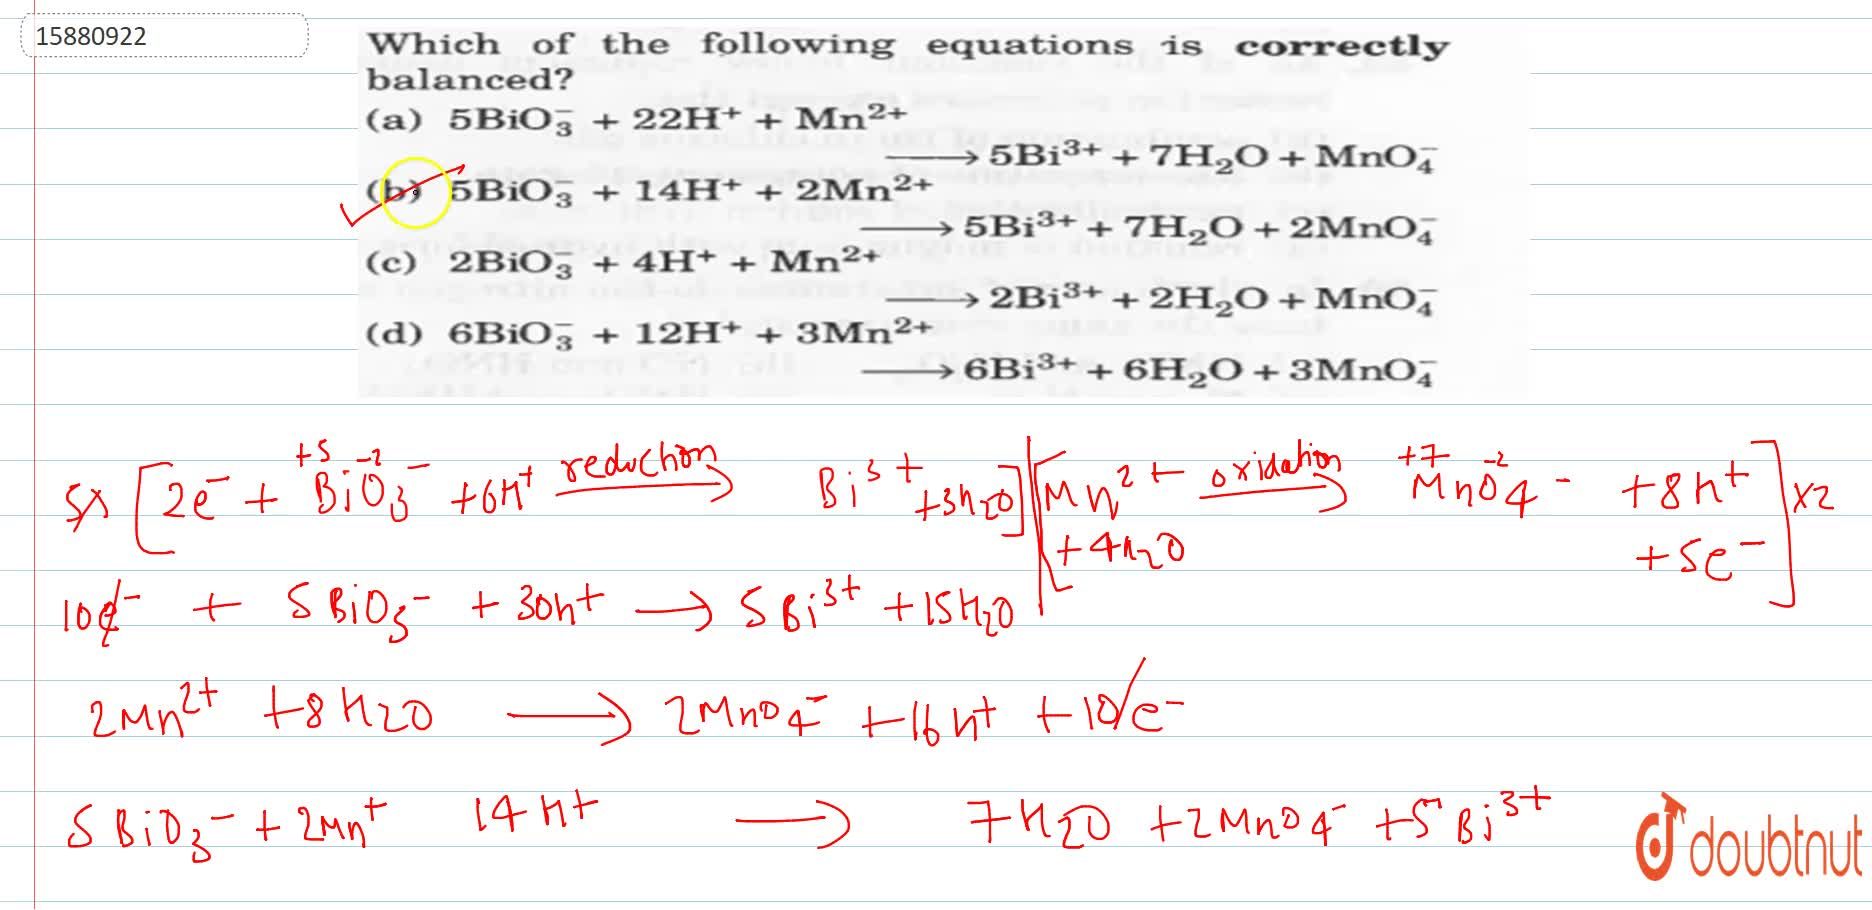 15880922
Which of the following equations is correctly
balanced?
(a) 5BiO₃⁻ + 22H⁺ + Mn²⁺
⟶ 5Bi³⁺ + 7H₂O + MnO₄⁻
(b) 5BiO₃⁻ + 14H⁺ + 2Mn²⁺
⟶ 5Bi³⁺ + 7H₂O + 2MnO₄⁻
(c) 2BiO₃⁻ + 4H⁺ + Mn²⁺
⟶ 2Bi³⁺ + 2H₂O + MnO₄⁻
(d) 6BiO₃⁻ + 12H⁺ + 3Mn²⁺
⟶ 6Bi³⁺ + 6H₂O + 3MnO₄⁻
+5 -2 +7 -2
5x [2e⁻ + BiO₃⁻ + 6H⁺ reduction ⟶ Bi³⁺ + 3H₂O] [Mn²⁺ oxidation ⟶ MnO₄⁻ + 8H⁺ ] x2
+ 4H₂O + 5e⁻
10e⁻ + 5BiO₃⁻ + 30H⁺ ⟶ 5Bi³⁺ + 15H₂O
2Mn²⁺ + 8H₂O ⟶ 2MnO₄⁻ + 16H⁺ + 10e⁻
5BiO₃⁻ + 2Mn⁺ 14H⁺ ⟶ 7H₂O + 2MnO₄⁻ + 5Bi³⁺
doubtnut